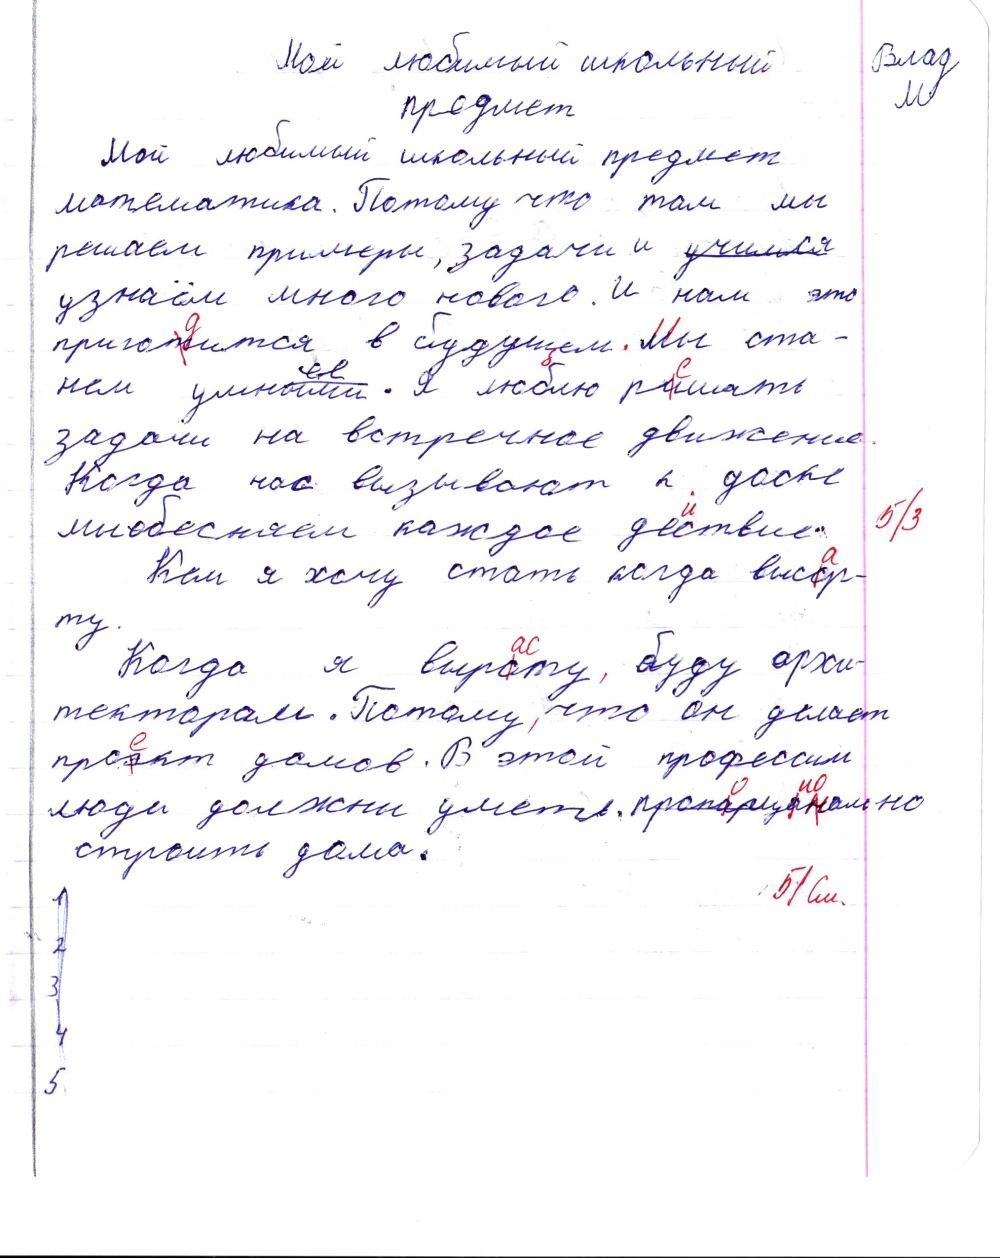 Мой любимый школьный
предмет
Влад
М
Мой любимый школьный предмет
математика. Потому что там мы
решаем примеры, задачи и учимся
узнаём много нового. И нам это
приготится в будущем. Мы ста-
д
нем умными. Я люблю ришать
ее
е
задачи на встречное движение.
Когда нас вызывают к доске
мыобесняем каждое деотвие.
й
5/3
Кем я хочу стать когда высор-
а
ту.
Когда я выроту, буду архи-
ас
тектарам. Потому, что он делает
проэкт домов. В этой профессии
е
люди должны уметь. пропарцанально
о
ио
строить дома.
5/См.
1
2
3
4
5